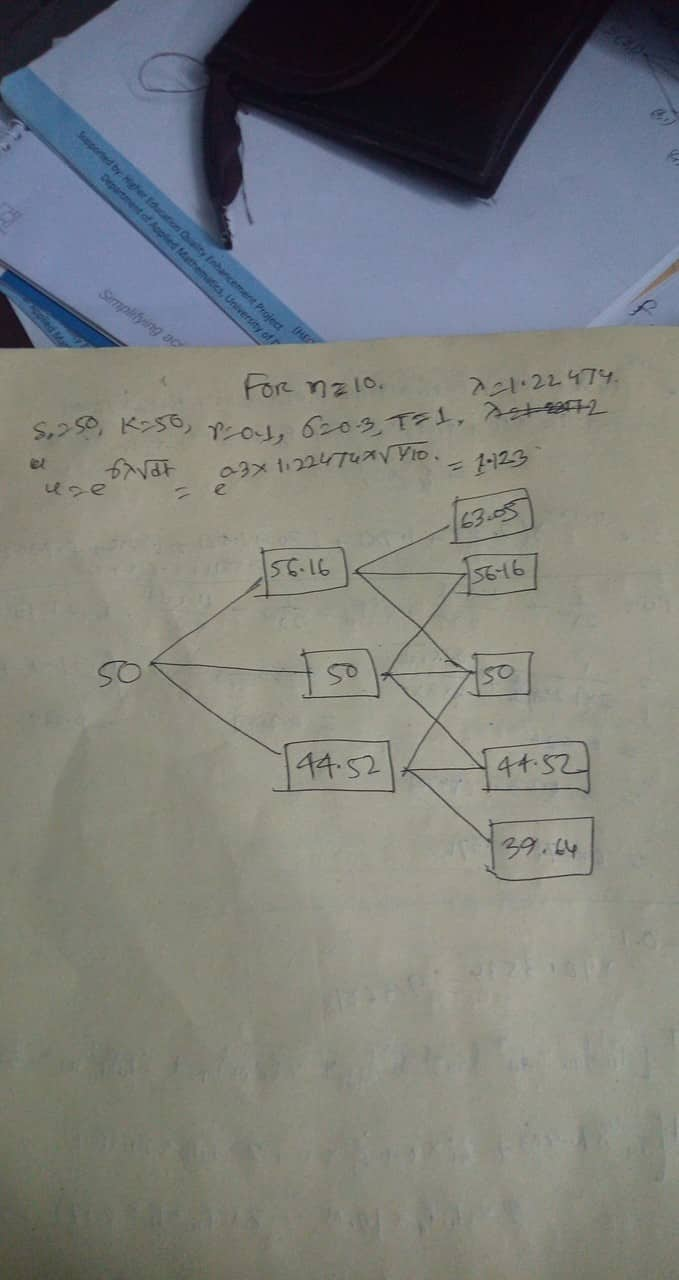 Supported by: Higher Education Quality Enhancement Project (HEQ
Department of Applied Mathematics, University of
Simplifying acc
For n=10.
λ=1.22474.
S₀=50, K=50, r=0.1, σ=0.3, T=1,
u=e^σλ√dt = e^0.3×1.22474×√1/10. = 1.123
63.05
56.16
56.16
50
50
50
44.52
44.52
39.64